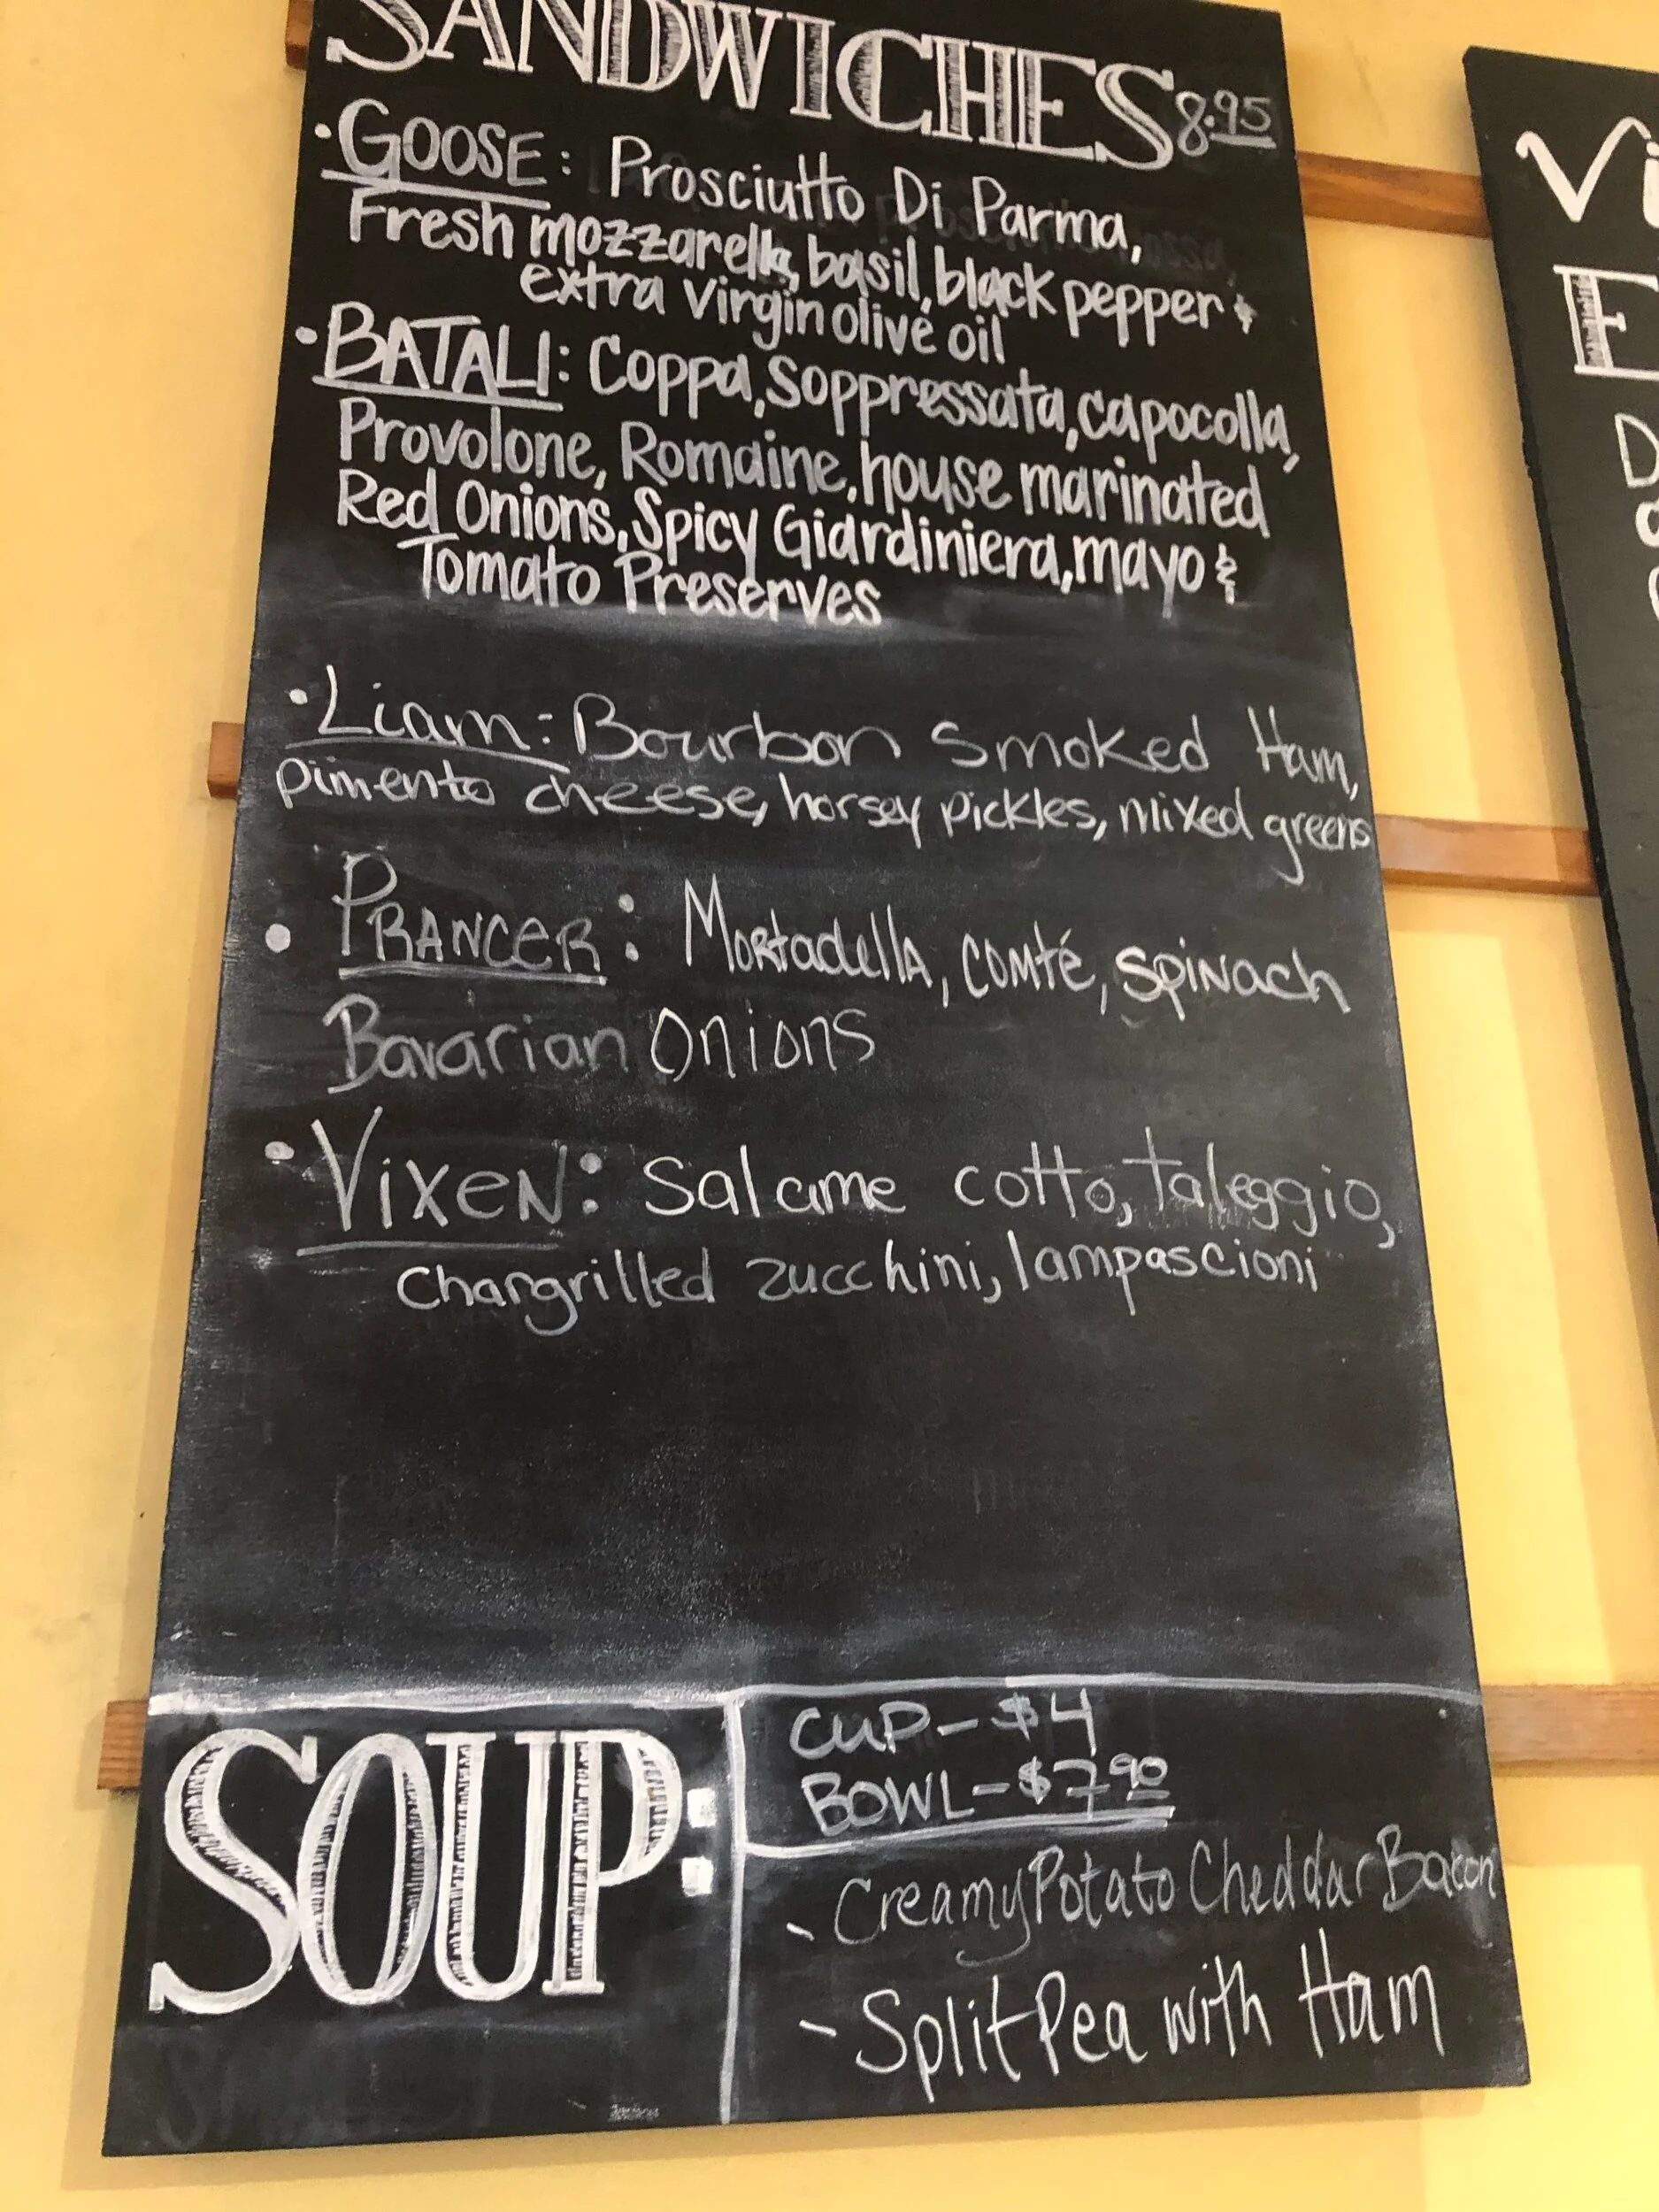 SANDWICHES 8.95
• GOOSE: Prosciutto Di Parma,
Fresh mozzarella, basil, black pepper &
extra virgin olive oil
• BATALI: Coppa, Soppressata, capocolla,
Provolone, Romaine, house marinated
Red Onions, Spicy Giardiniera, mayo &
Tomato Preserves
• Liam: Bourbon Smoked Ham,
pimento cheese, horsey pickles, mixed greens
• PRANCER: Mortadella, comté, spinach
Bavarian Onions
• VixeN: Salame cotto, taleggio,
Chargrilled zucchini, lampascioni
SOUP:
CUP - $4
BOWL - $7.90
- Creamy Potato Cheddar Bacon
- Split Pea with Ham